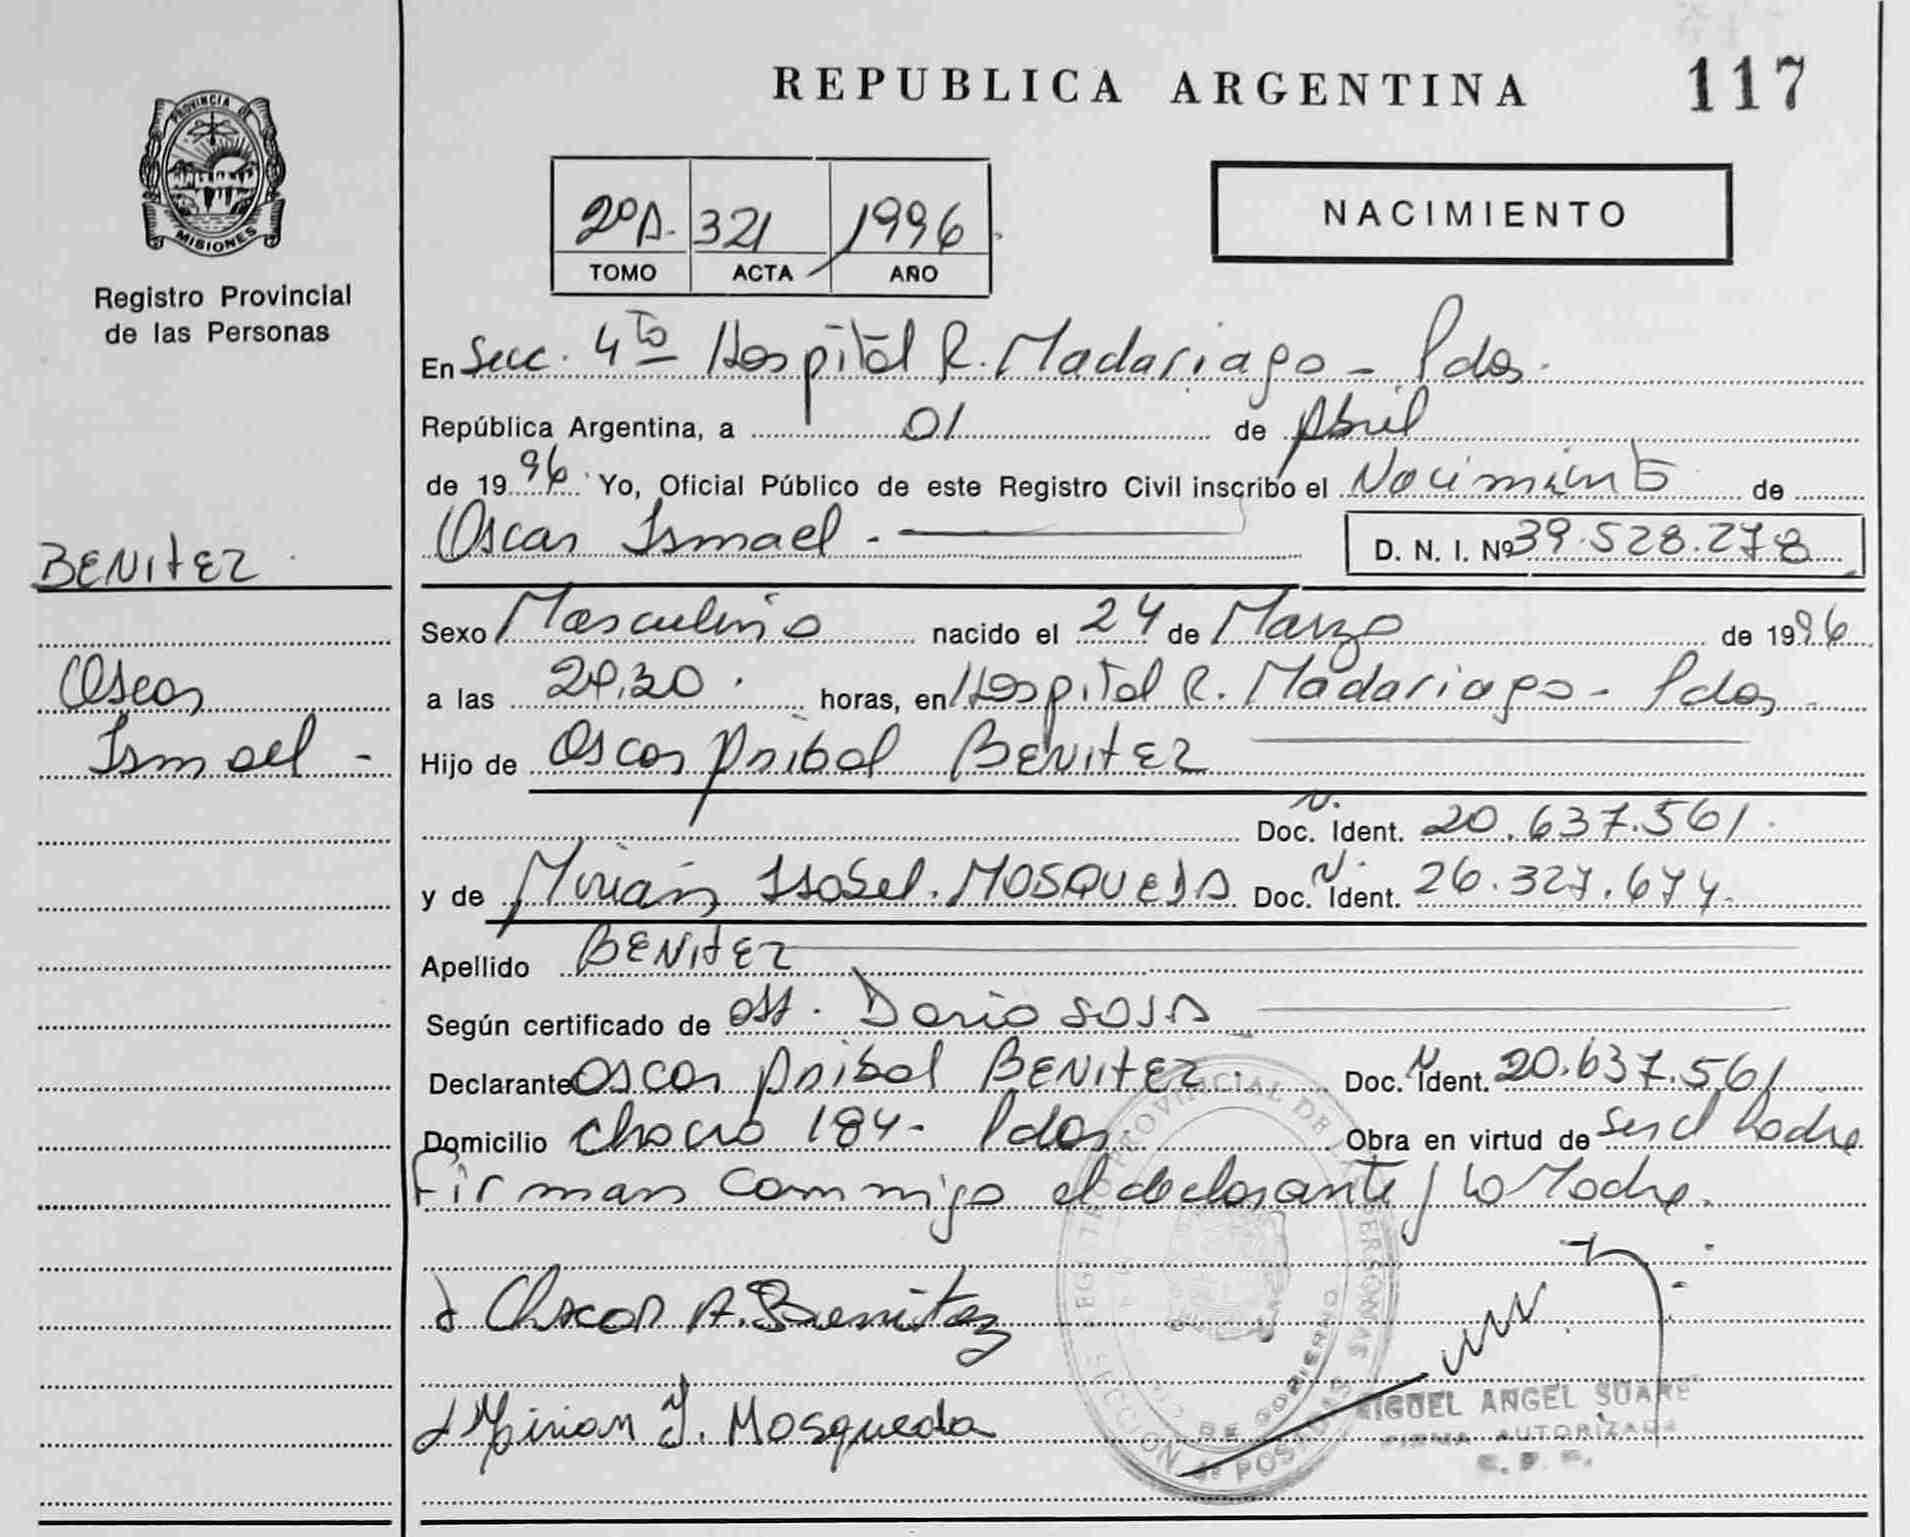 REPUBLICA ARGENTINA 117
PROVINCIA DE
MISIONES
Registro Provincial
de las Personas
2º A. 321 1996
TOMO ACTA AÑO
NACIMIENTO
En Secc. 4to Hospital R. Madariaga - Pdas.
República Argentina, a 01 de Abril
de 1996 Yo, Oficial Público de este Registro Civil inscribo el Nacimiento de
Oscar Ismael - D. N. I. Nº 39.528.278
BENITEZ
Oscar
Ismael -
Sexo Masculino nacido el 24 de Marzo de 1996
a las horas, en Hospital R. Madariaga - Pdas.
Hijo de Oscar Anibal BENITEZ
Doc. N. Ident. 20.637.561.
y de Mirian Isabel. MOSQUEDA Doc. N. Ident. 26.327.674.
Apellido BENITEZ
Según certificado de Obst. Dario SOSA
Declarante Oscar Anibal BENITEZ. Doc. N Ident. 20.637.561
Domicilio Chaco 184- Pdas. Obra en virtud de ser el Padre
Firman conmigo el declarante y la Madre.
Oscar A. Benitez
Mirian I. Mosqueda
REGISTRO PROVINCIAL DE LAS PERSONAS
DE GOBIERNO
SECCION 4º POSADAS
MIGUEL ANGEL SUAREZ
FIRMA AUTORIZADA